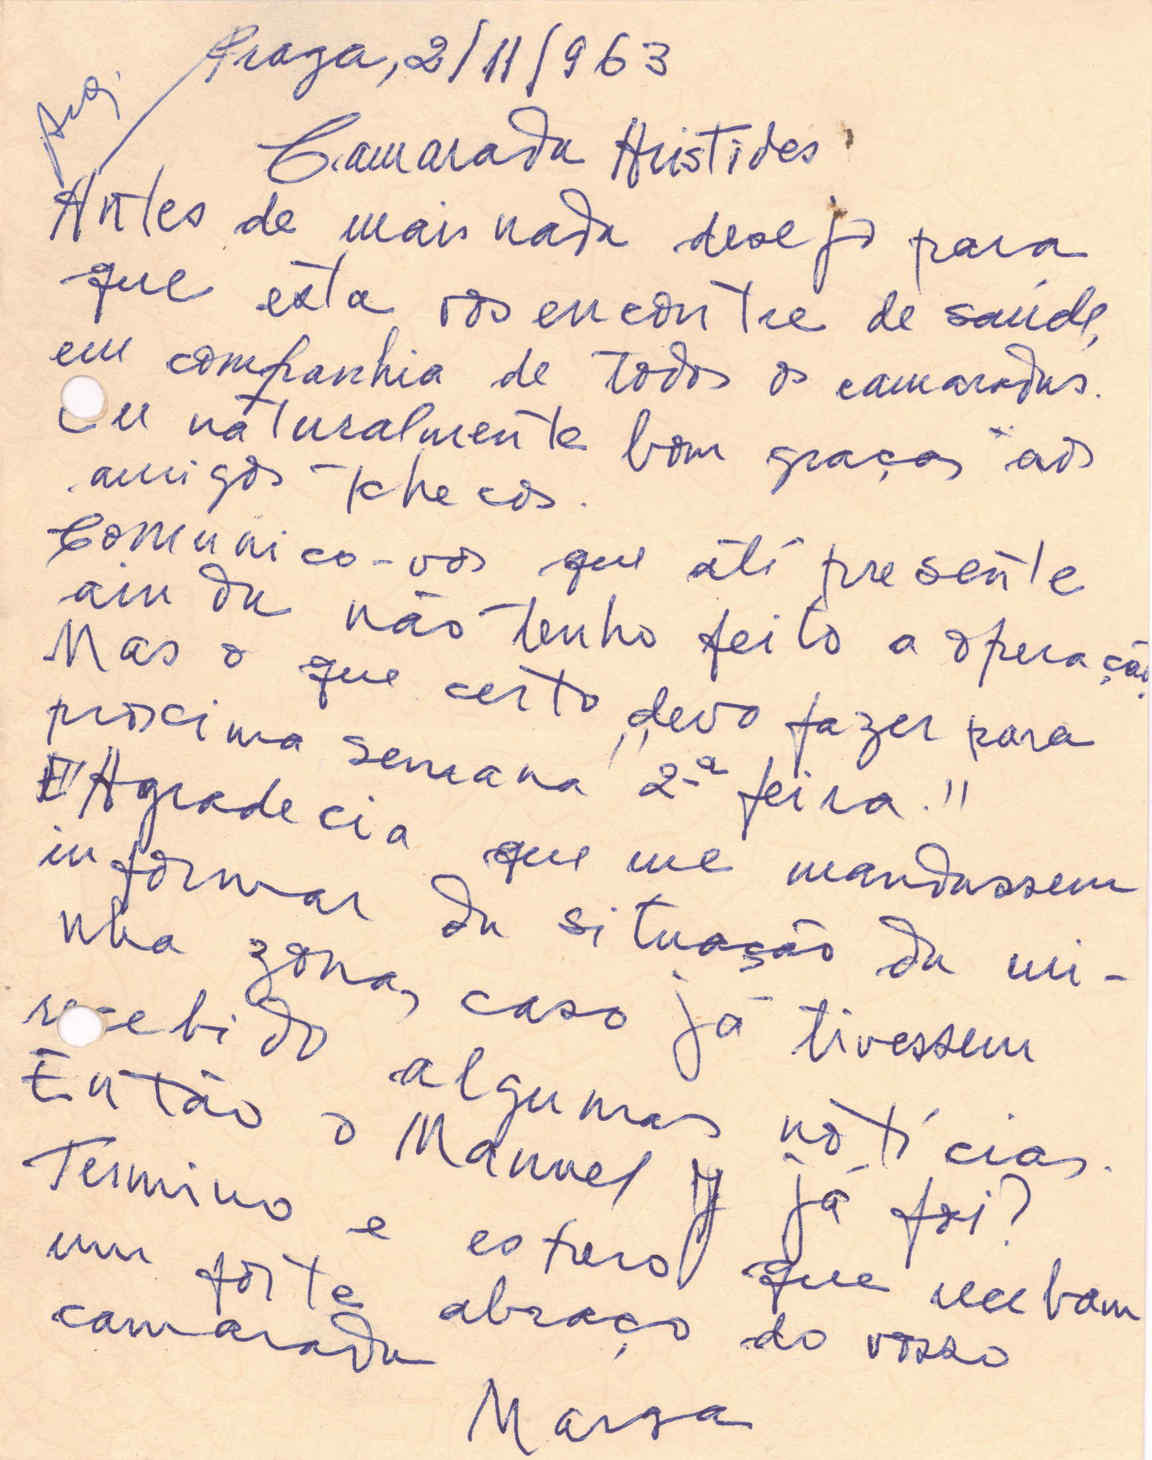 Praga, 2/11/963
Camarada Aristides
Antes de mais nada desejo para
que esta vos encontre de saúde,
em companhia de todos os camaradas.
Eu naturalmente bom graças aos
amigos tchecos.
Comunico-vos que até presente
ainda não tenho feito a operação.
Mas o que certo, devo fazer para
próxima semana "2-a feira."
Agradecia que me mandassem
informar da situação da mi-
nha zona, caso já tivessem
recebido algumas notícias.
Então o Manuel já foi?
Termino e espero que recebam
um forte abraço do vosso
camarada